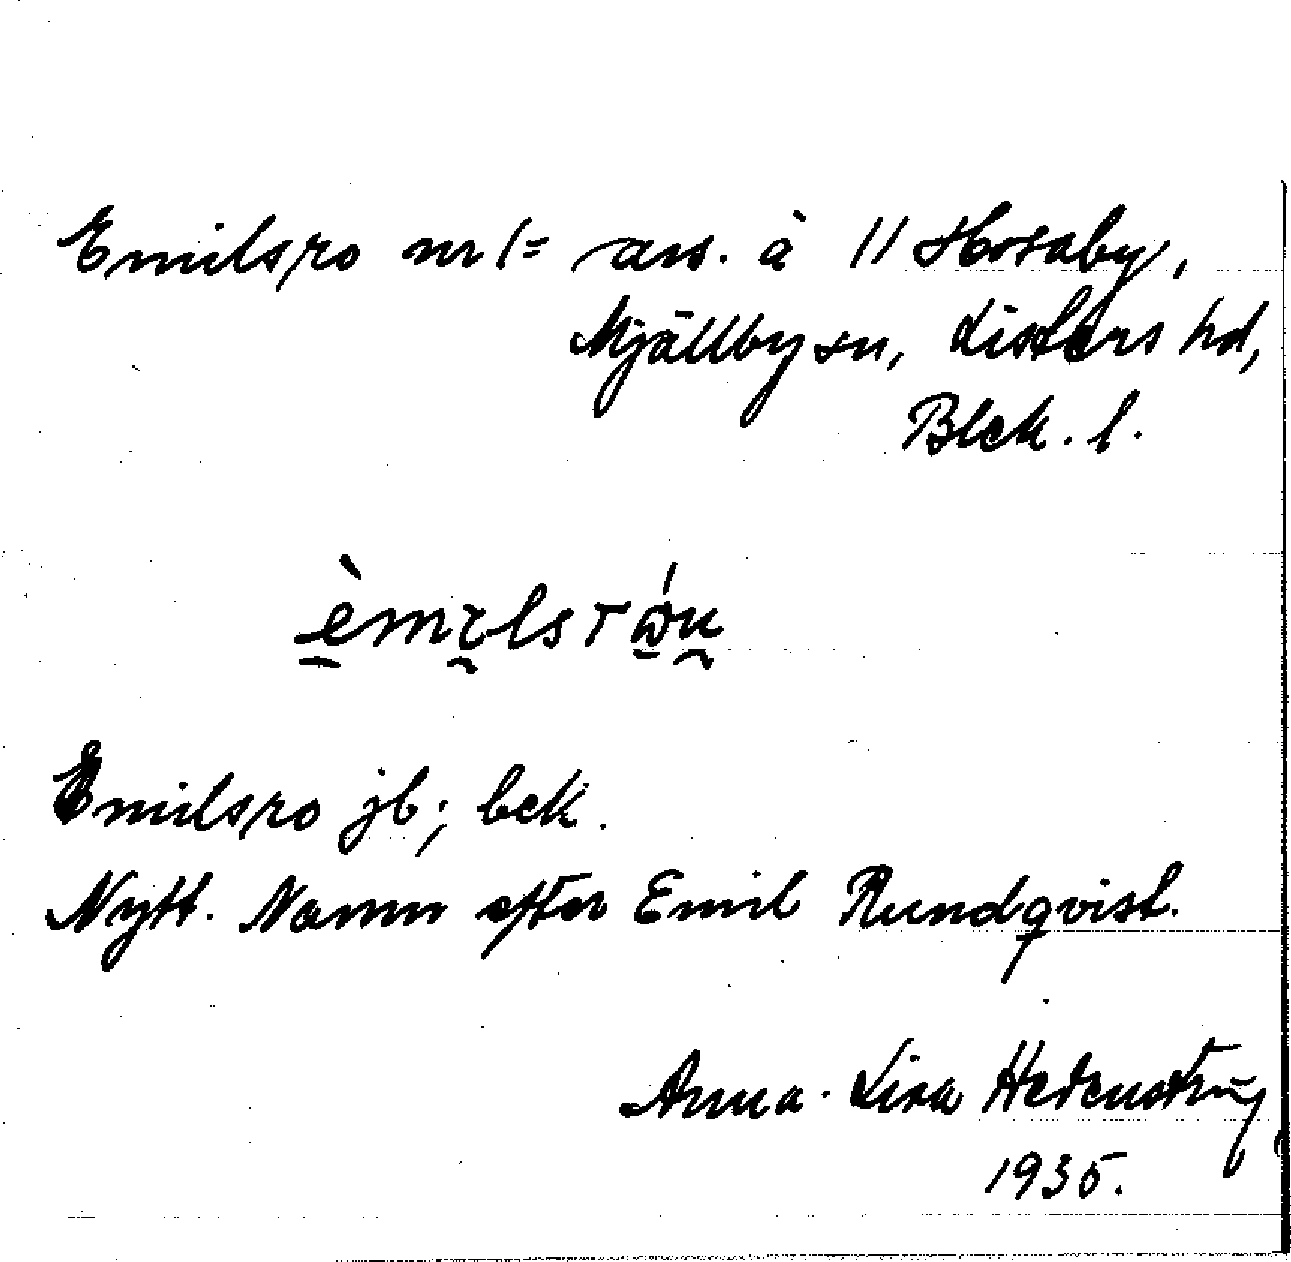 Emilsro nr 1= avs. à 11 Hosaby,
Mjällby sn, Listers hd,
Blek. l.
Emilsro jb; bek.
Nytt. Namn efter Emil Rundqvist.
Anna-Lisa
1935.